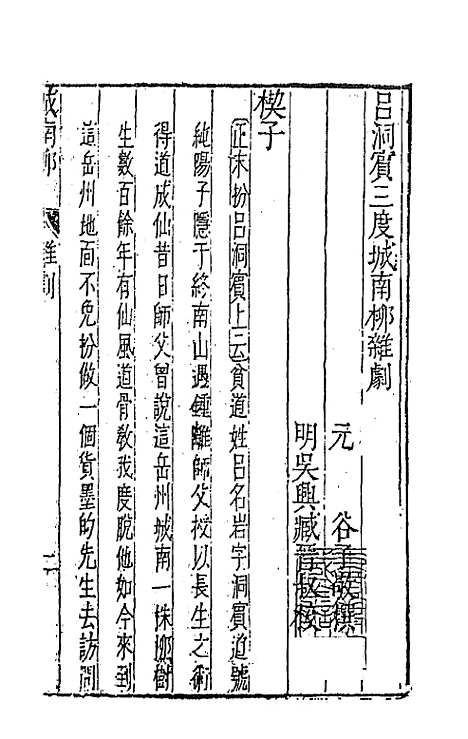 呂洞賓三度城南柳雜劇
元 谷子敬撰
明吳興臧晉叔校
楔子
正末扮呂洞賓上云貧道姓呂名岩字洞賓道號
純陽子隱于終南山遇鍾離師父授以長生之術
得道成仙昔日師父曾說這岳州城南一株柳樹
生數百餘年有仙風道骨教我度脫他如今來到
這岳州地面不免扮做一個貨墨的先生去訪問
城南柳 雜劇 一